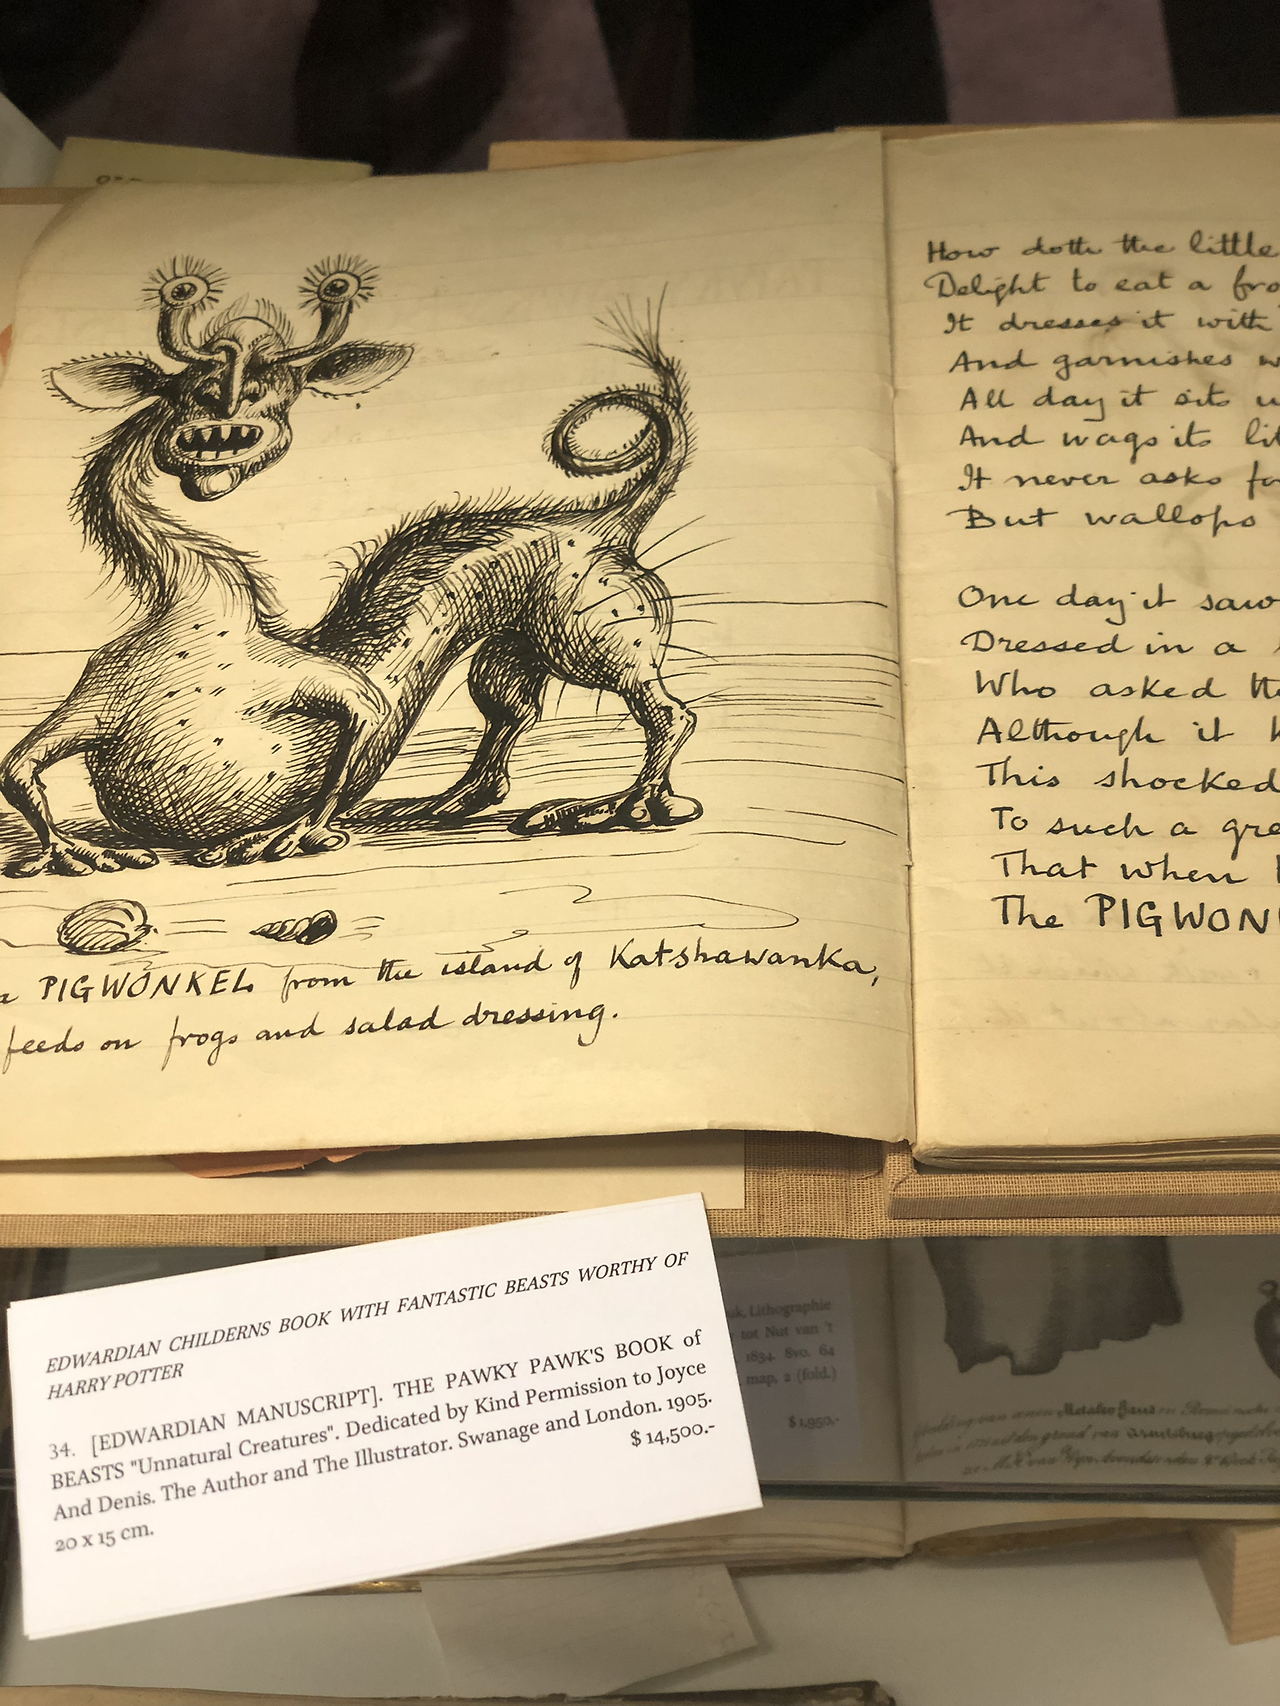 PIGWONKEL from the island of Katshawanka,
feeds on frogs and salad dressing.
How doth the little
Delight to eat a fro
It dresses it with
And garnishes w
All day it sits u
And wags its lit
It never asks fo
But wallops
One day it saw
Dressed in a
Who asked the
Although it h
This shocked
To such a gre
That when h
The PIGWONK
EDWARDIAN CHILDERNS BOOK WITH FANTASTIC BEASTS WORTHY OF
HARRY POTTER
34. [EDWARDIAN MANUSCRIPT]. THE PAWKY PAWK'S BOOK of
BEASTS "Unnatural Creatures". Dedicated by Kind Permission to Joyce
And Denis. The Author and The Illustrator. Swanage and London. 1905.
20 x 15 cm.
$ 14,500.-
uk, Lithographie
tot Nut van 't
1834. 8vo. 64
map, 2 (fold.)
$ 1,950.-